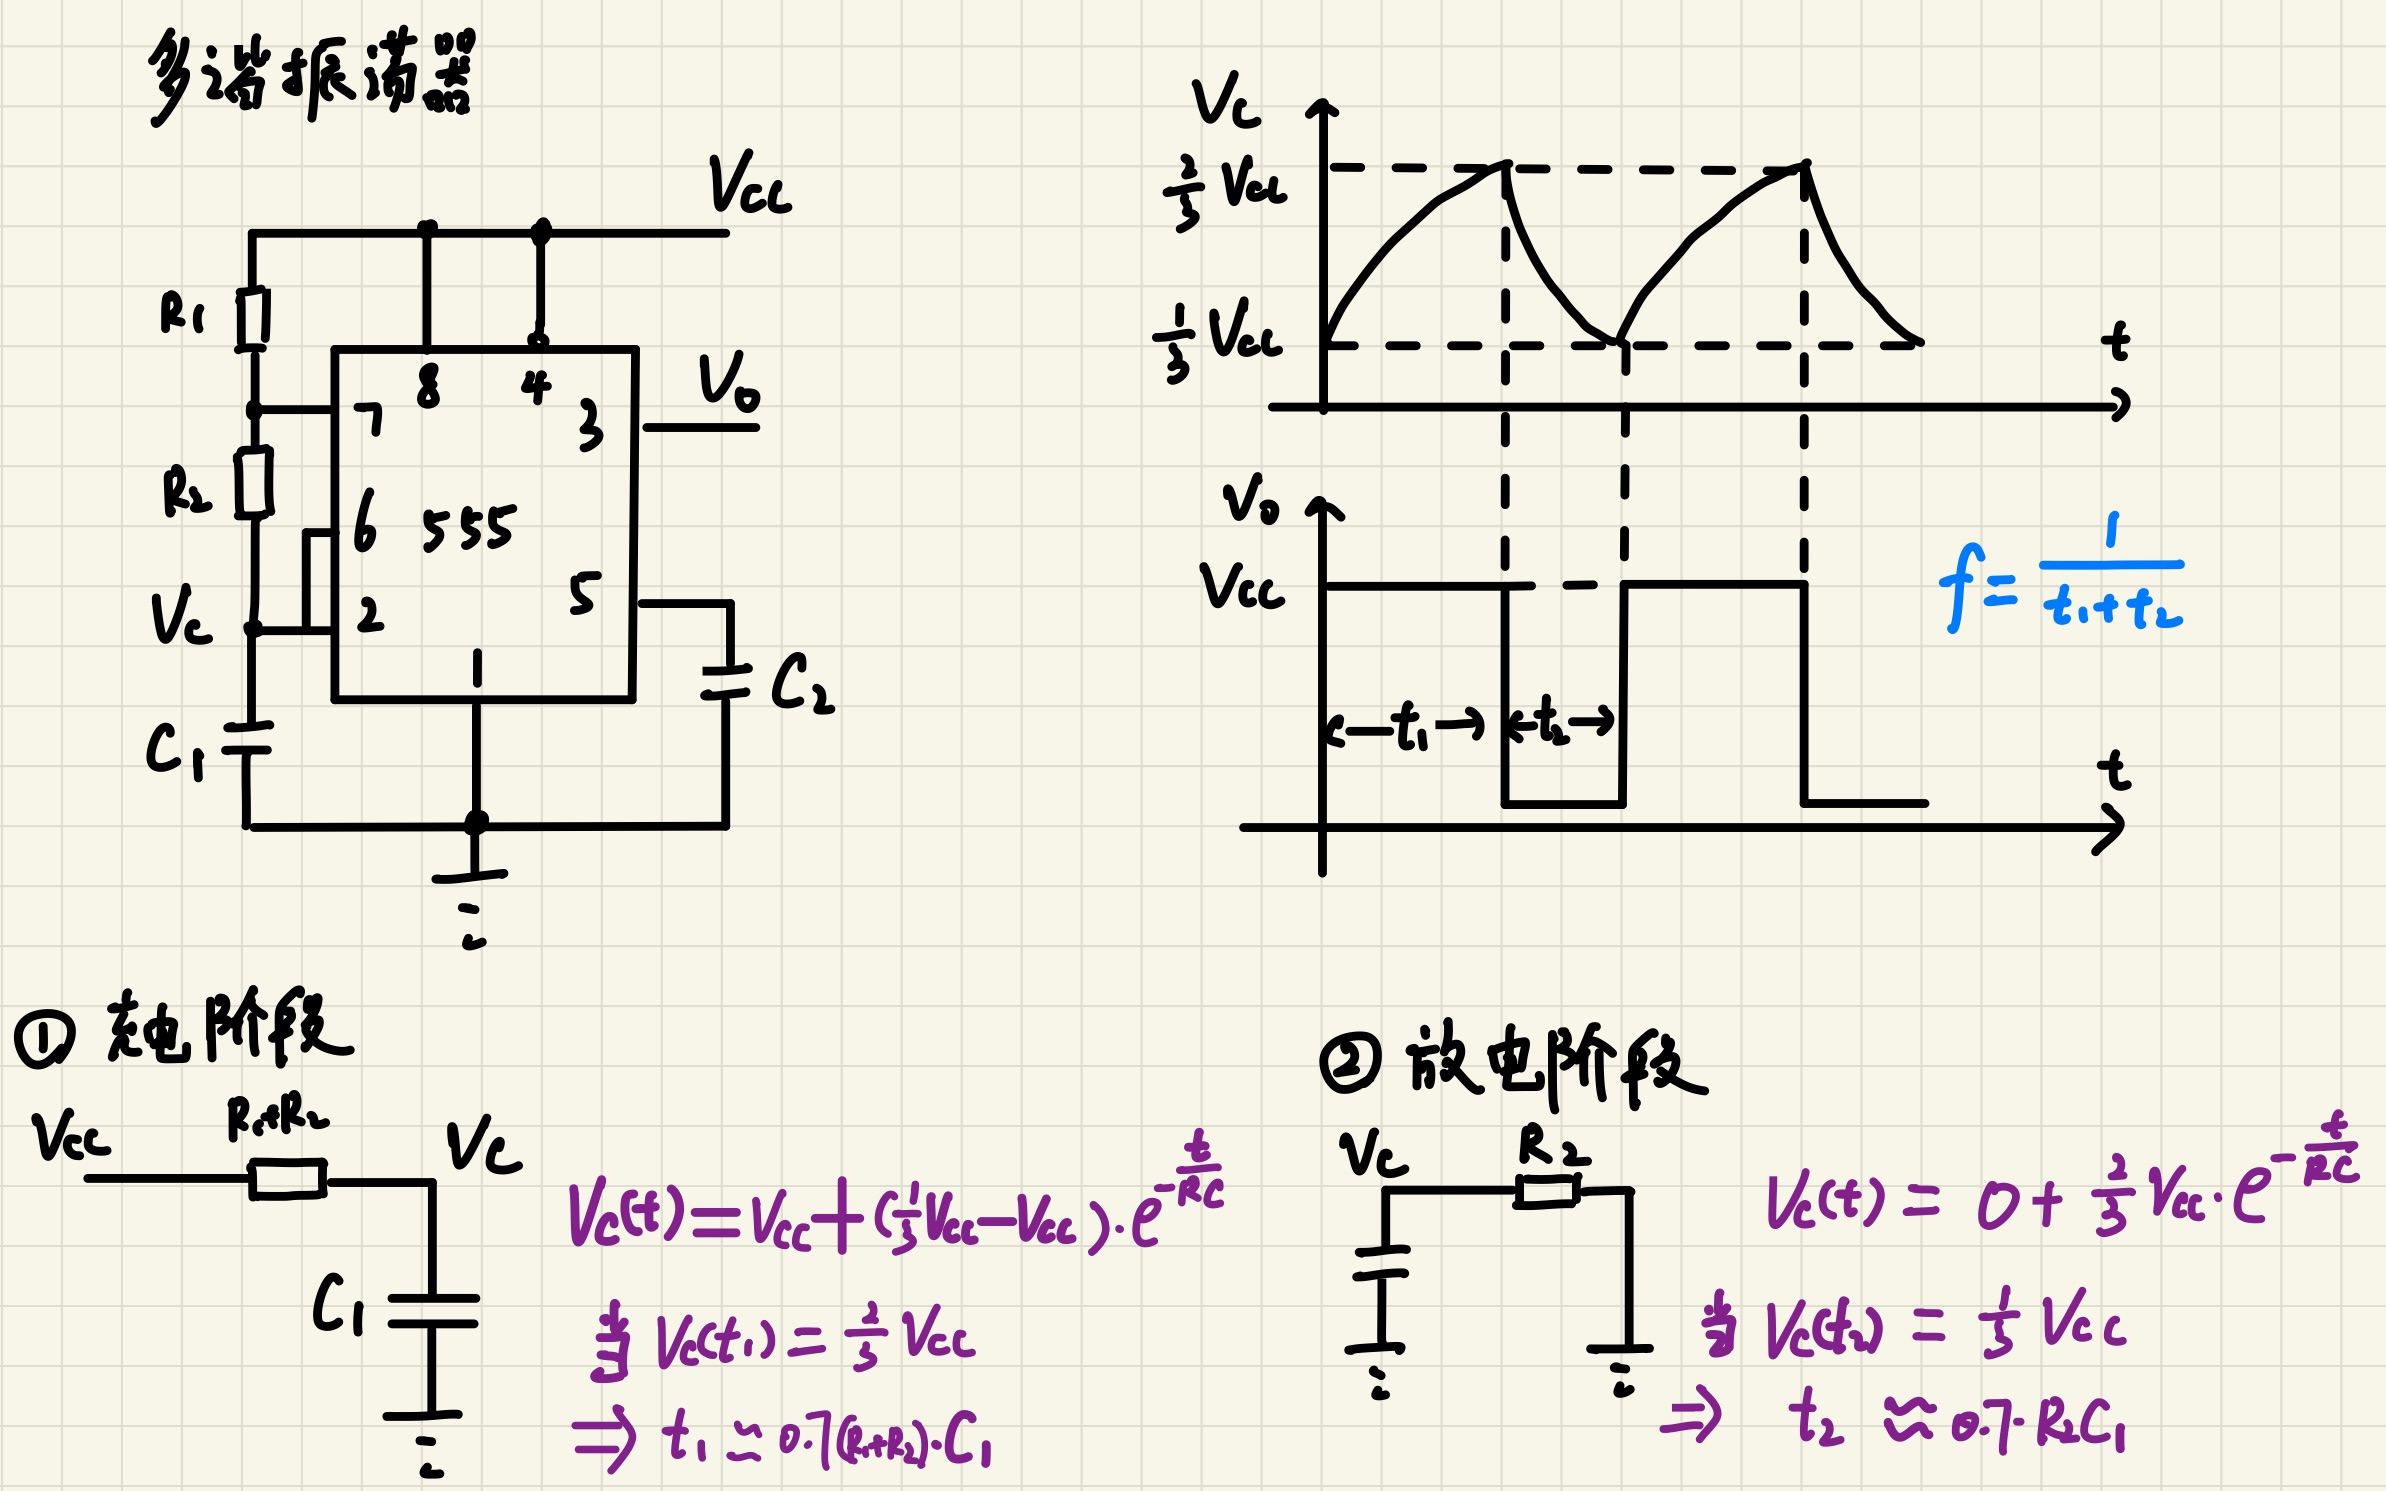 多谐振荡器
Vcc
R₁
8 4
7 3 V₀
R₂
6 555
5
Vc 2
1
C₂
C₁
Vc
2/3 Vcc
1/3 Vcc
t
V₀
Vcc
f = 1/(t₁+t₂)
t₁ t₂
t
① 充电阶段
Vcc R₁+R₂ Vc
C₁
Vc(t) = Vcc + (1/3 Vcc - Vcc)·e^(-t/RC)
当 Vc(t₁) = 2/3 Vcc
⇒ t₁ ≈ 0.7(R₁+R₂)·C₁
② 放电阶段
Vc R₂
Vc(t) = 0 + 2/3 Vcc·e^(-t/RC)
当 Vc(t₂) = 1/3 Vcc
⇒ t₂ ≈ 0.7·R₂C₁